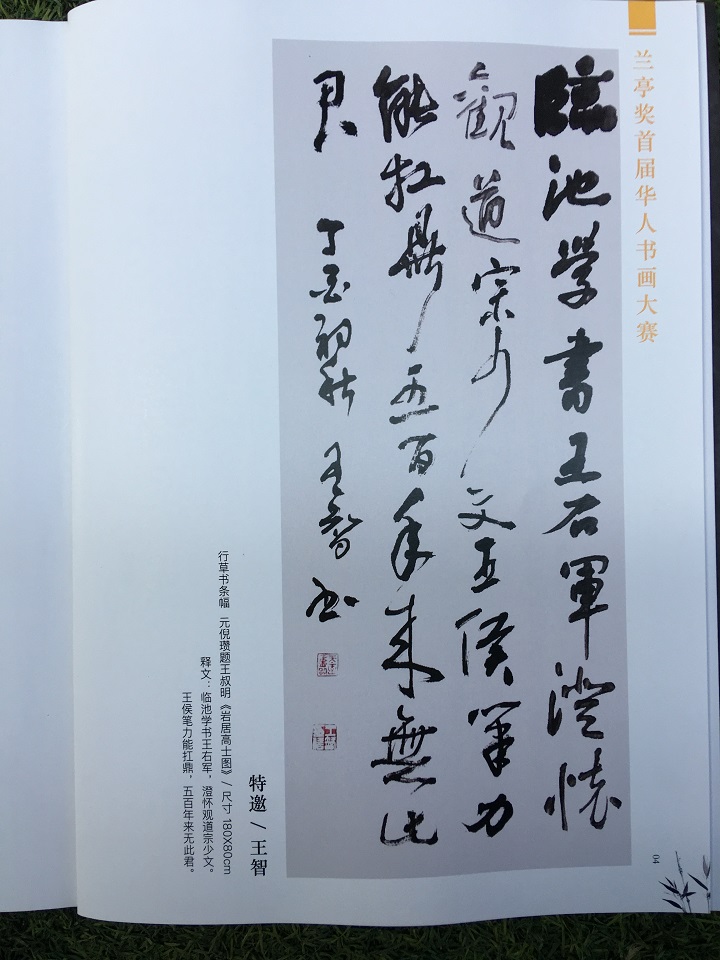 兰亭奖首届华人书画大赛
臨池學書王右軍澄懷
觀道宗少文王侯筆力
能扛鼎五百年来無此
君 丁酉初秋 王智书
特邀 / 王智
行草书条幅 元倪瓒题王叔明《岩居高士图》/ 尺寸 180X80cm
释文：临池学书王右军，澄怀观道宗少文。
王侯笔力能扛鼎，五百年来无此君。
04